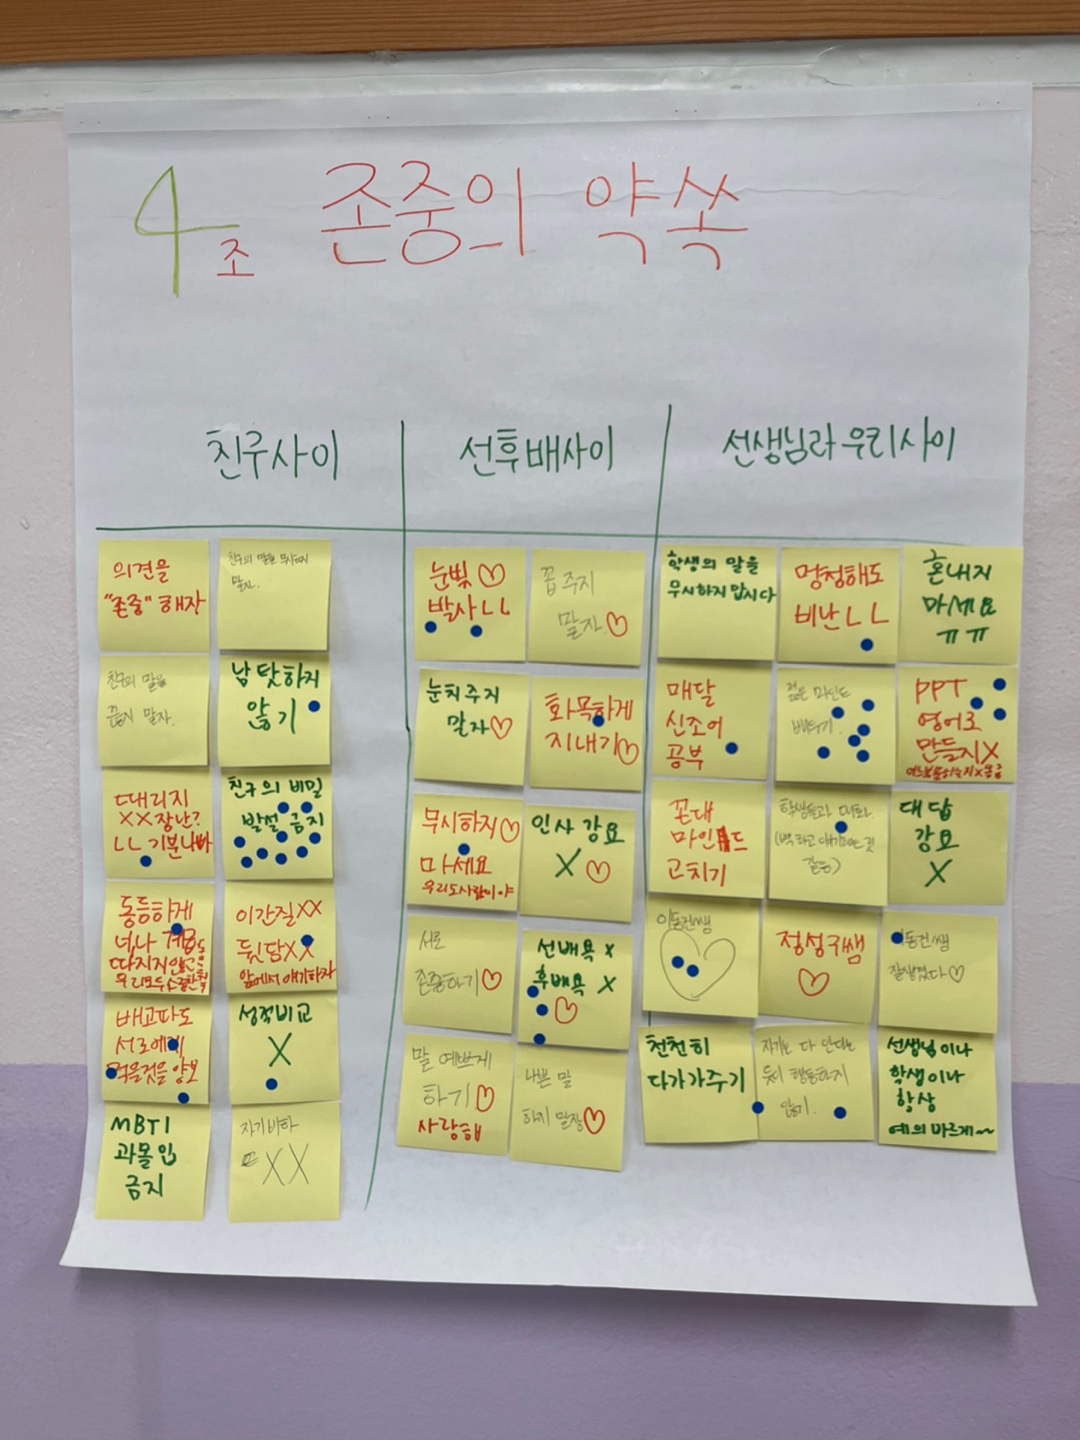 4조 존중의 약속
친구사이
의견을
"존중"해자
친구의 말을 무시하지
말자.
친구의 말을
끊지 말자.
남 탓하지
않기
때리지
XX장난?
ㄴㄴ 기분나빠
친구의 비밀
발설 금지
동등하게
너나 계급
따지지 않고
우리모두 소중한
이간질XX
뒷담XX
앞에서 얘기하자
배고파도
서로에게
먹을것을 양보
성적비교
X
MBTI
과몰입
금지
자기비하
XX
선후배사이
눈빛♡
발사ㄴㄴ
꼽주지
말자.♡
눈치주지
말자♡
화목하게
지내기♡
무시하지♡
마세요
우리도사람이야
인사 강요
X ♡
서로
존중하기♡
선배욕 X
후배욕 X
♡
말 예쁘게
하기♡
사랑해
나쁜 말
하지 말자♡
선생님과 우리사이
학생의 말을
무시하지 맙시다
멍청해도
비난ㄴㄴ
혼내지
마세요
ㅠㅠ
매달
신조어
공부
젊은 마인드
배우기.
PPT
영어로
만들지X
꼰대
마인드
고치기
학생들과
대답
강요
X
이동건쌤
정성귀쌤
♡
이동건쌤
잘생겼다♡
천천히
다가가주기
자기는 다 안다는
듯이 행동하지
않기.
선생님이나
학생이나
항상
예의바르게~~